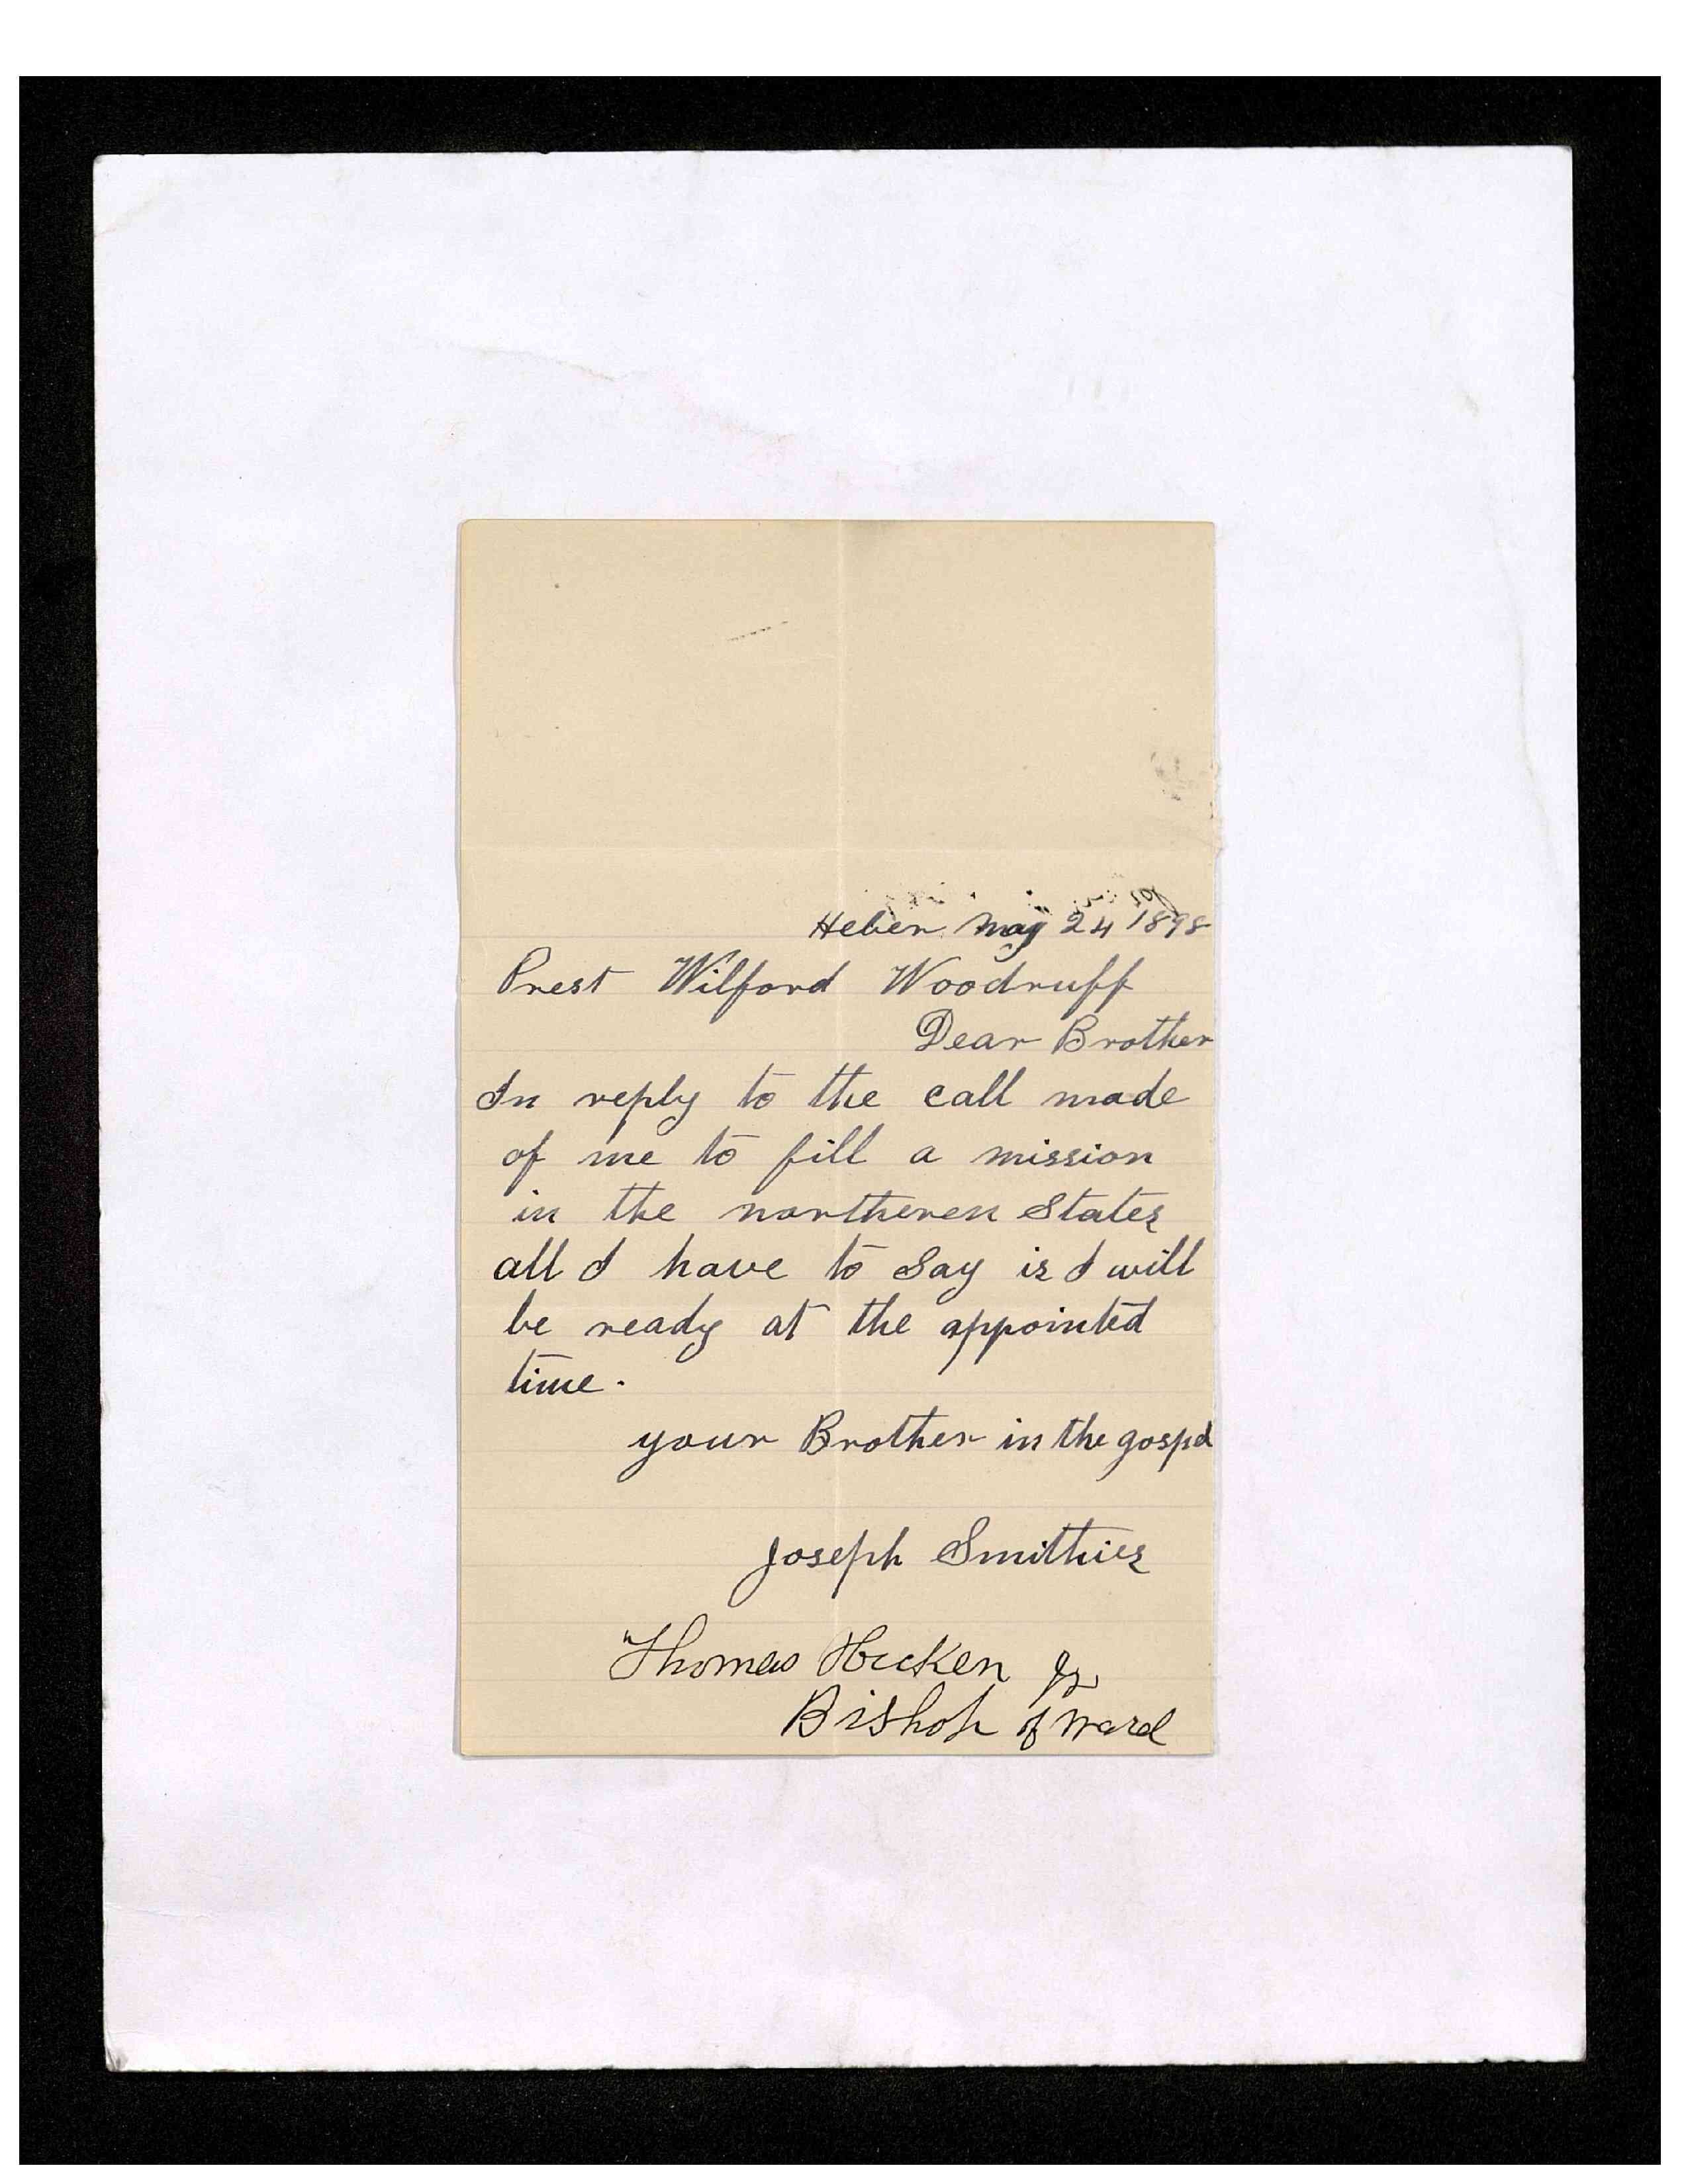 Heber May 24 1898
Prest Wilford Woodruff
Dear Brother
In reply to the call made
of me to fill a mission
in the northeren States
all I have to Say is I will
be ready at the appointed
time.
your Brother in the gospel
Joseph Smithies
Thomas Hicken Jr
Bishop of Ward